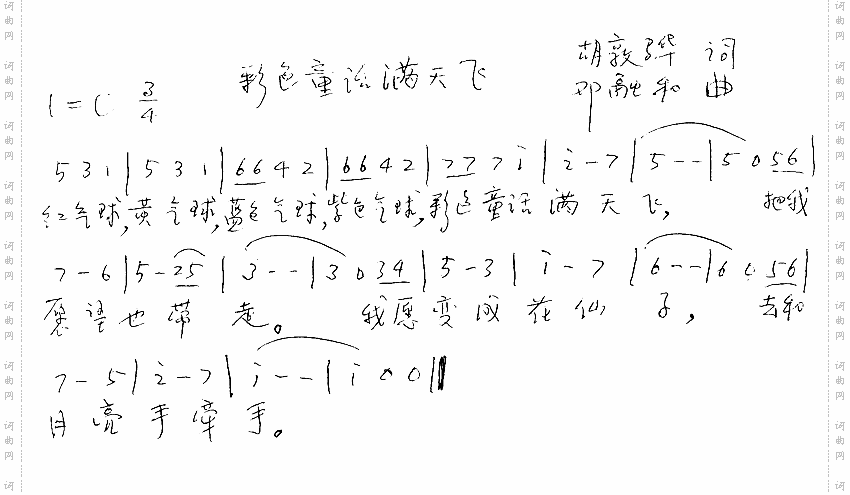 彩色童话满天飞
胡敦骅 词
1=C 3/4
邓融和 曲
5 3 1 | 5 3 1 | 6 6 4 2 | 6 6 4 2 | 7 7 7 i | 2 - 7 | 5 - - | 5 0 5 6 |
红气球,黄气球,蓝色气球,紫色气球,彩色童话满天飞, 把我
7 - 6 | 5 - 2 5 | 3 - - | 3 0 3 4 | 5 - 3 | i - 7 | 6 - - | 6 0 5 6 |
愿望也带走。 我愿变成花仙子, 去和
7 - 5 | 2 - 7 | i - - | i 0 0 ||
月亮手牵手。
词曲网
词曲网
词曲网
词曲网
词曲网
词曲网
词曲网
词曲网
词
词